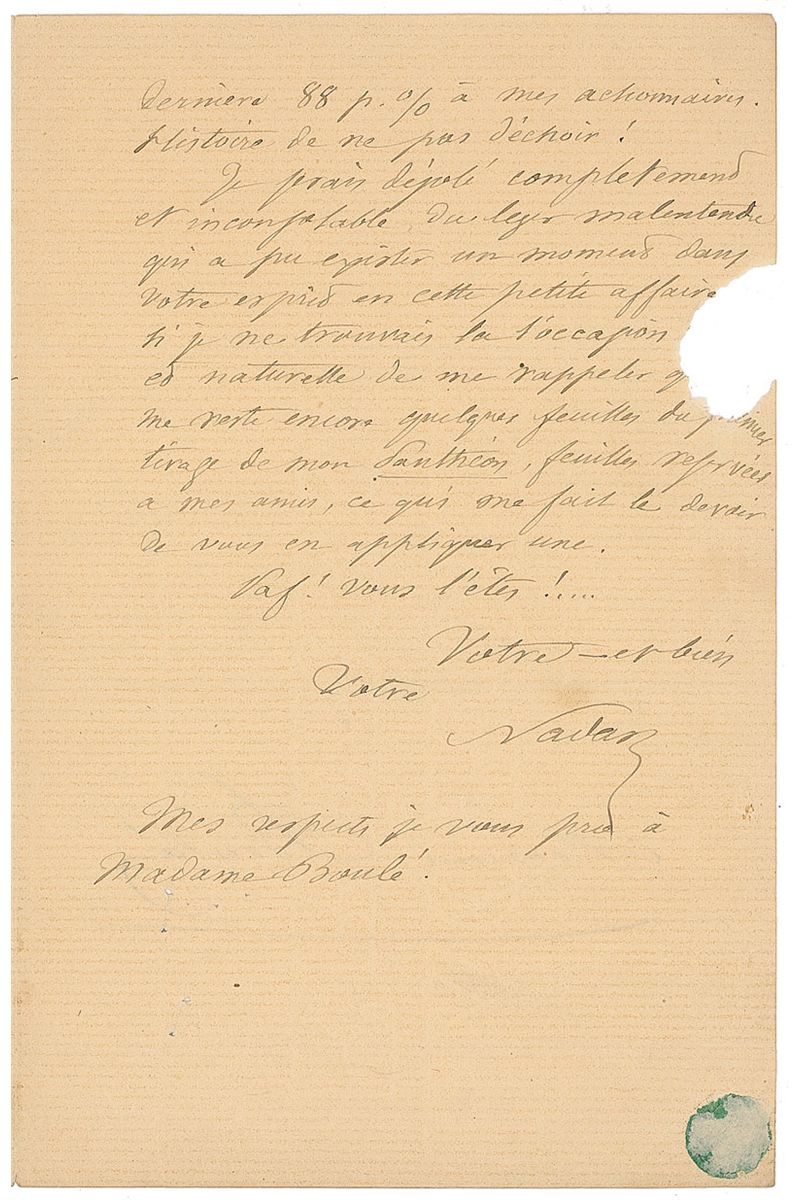 dernière 88 p. % à mes actionnaires.
Histoire de ne pas déchoir !
Je serais désolé complètement
et inconsolable du leger malentendu
qui a pu exister un moment dans
votre esprit en cette petite affaire
si je ne trouvais la l'occasion
et naturelle de me rappeler q
me reste encore quelques feuilles du premier
tirage de mon Panthéon, feuilles reservées
a mes amis, ce qui me fait le devoir
de vous en appliquer une.
Paf ! vous l'êtes !.....
Votre – et bien
Votre
Nadar
Mes respects je vous prie à
Madame Boulé.